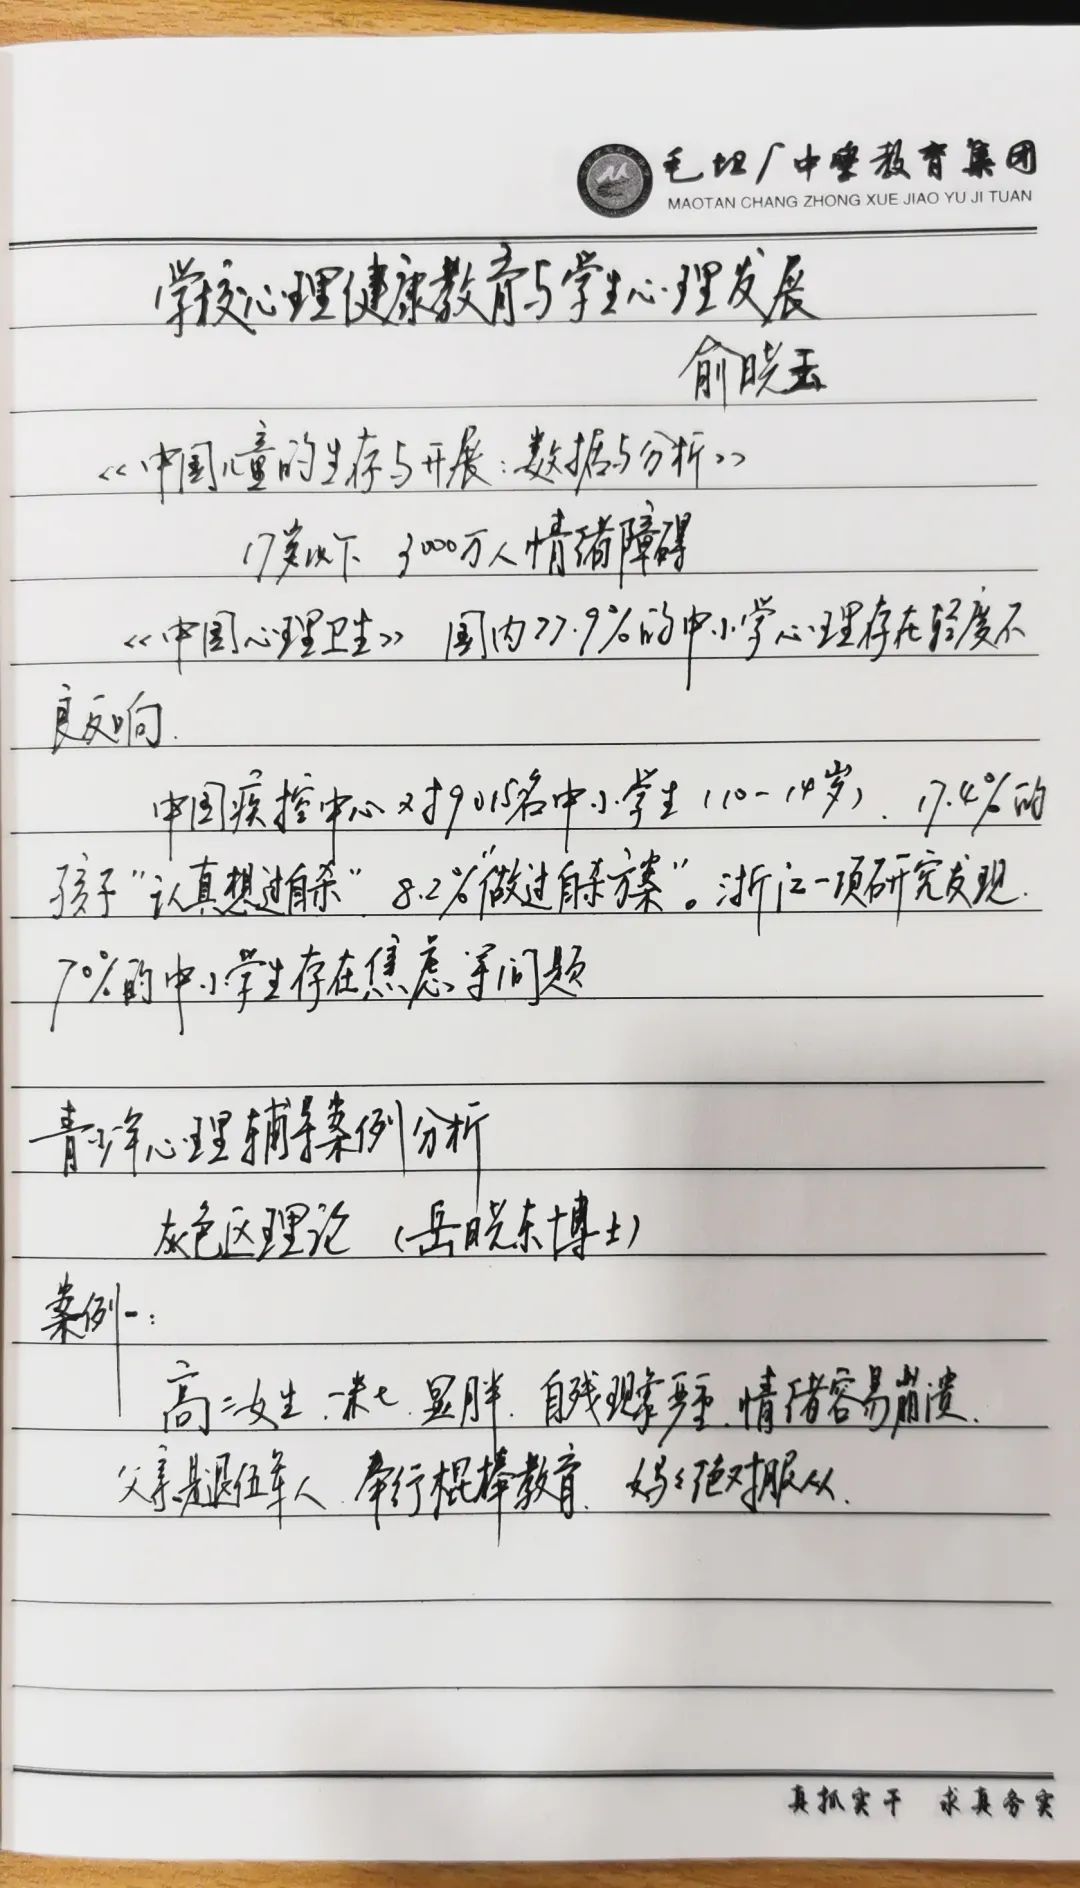 毛坦厂中学教育集团
MAOTAN CHANG ZHONG XUE JIAO YU JI TUAN
学校心理健康教育与学生心理发展
俞晓玉
《中国儿童的生存与开展:数据与分析》
17岁以下 3000万人情绪障碍
《中国心理卫生》 国内77.9%的中小学心理存在轻度不
良反响.
中国疾控中心对9015名中小学生(10-14岁), 17.4%的
孩子"认真想过自杀" 8.2%"做过自杀方案"。浙江一项研究发现.
70%的中小学生存在焦虑等问题
青少年心理辅导案例分析
灰色区理论 (岳晓东博士)
案例一:
高二女生,一米七,显胖.自残现象严重,情绪容易崩溃.
父亲是退伍军人,奉行棍棒教育,妈妈绝对服从.
真抓实干 求真务实